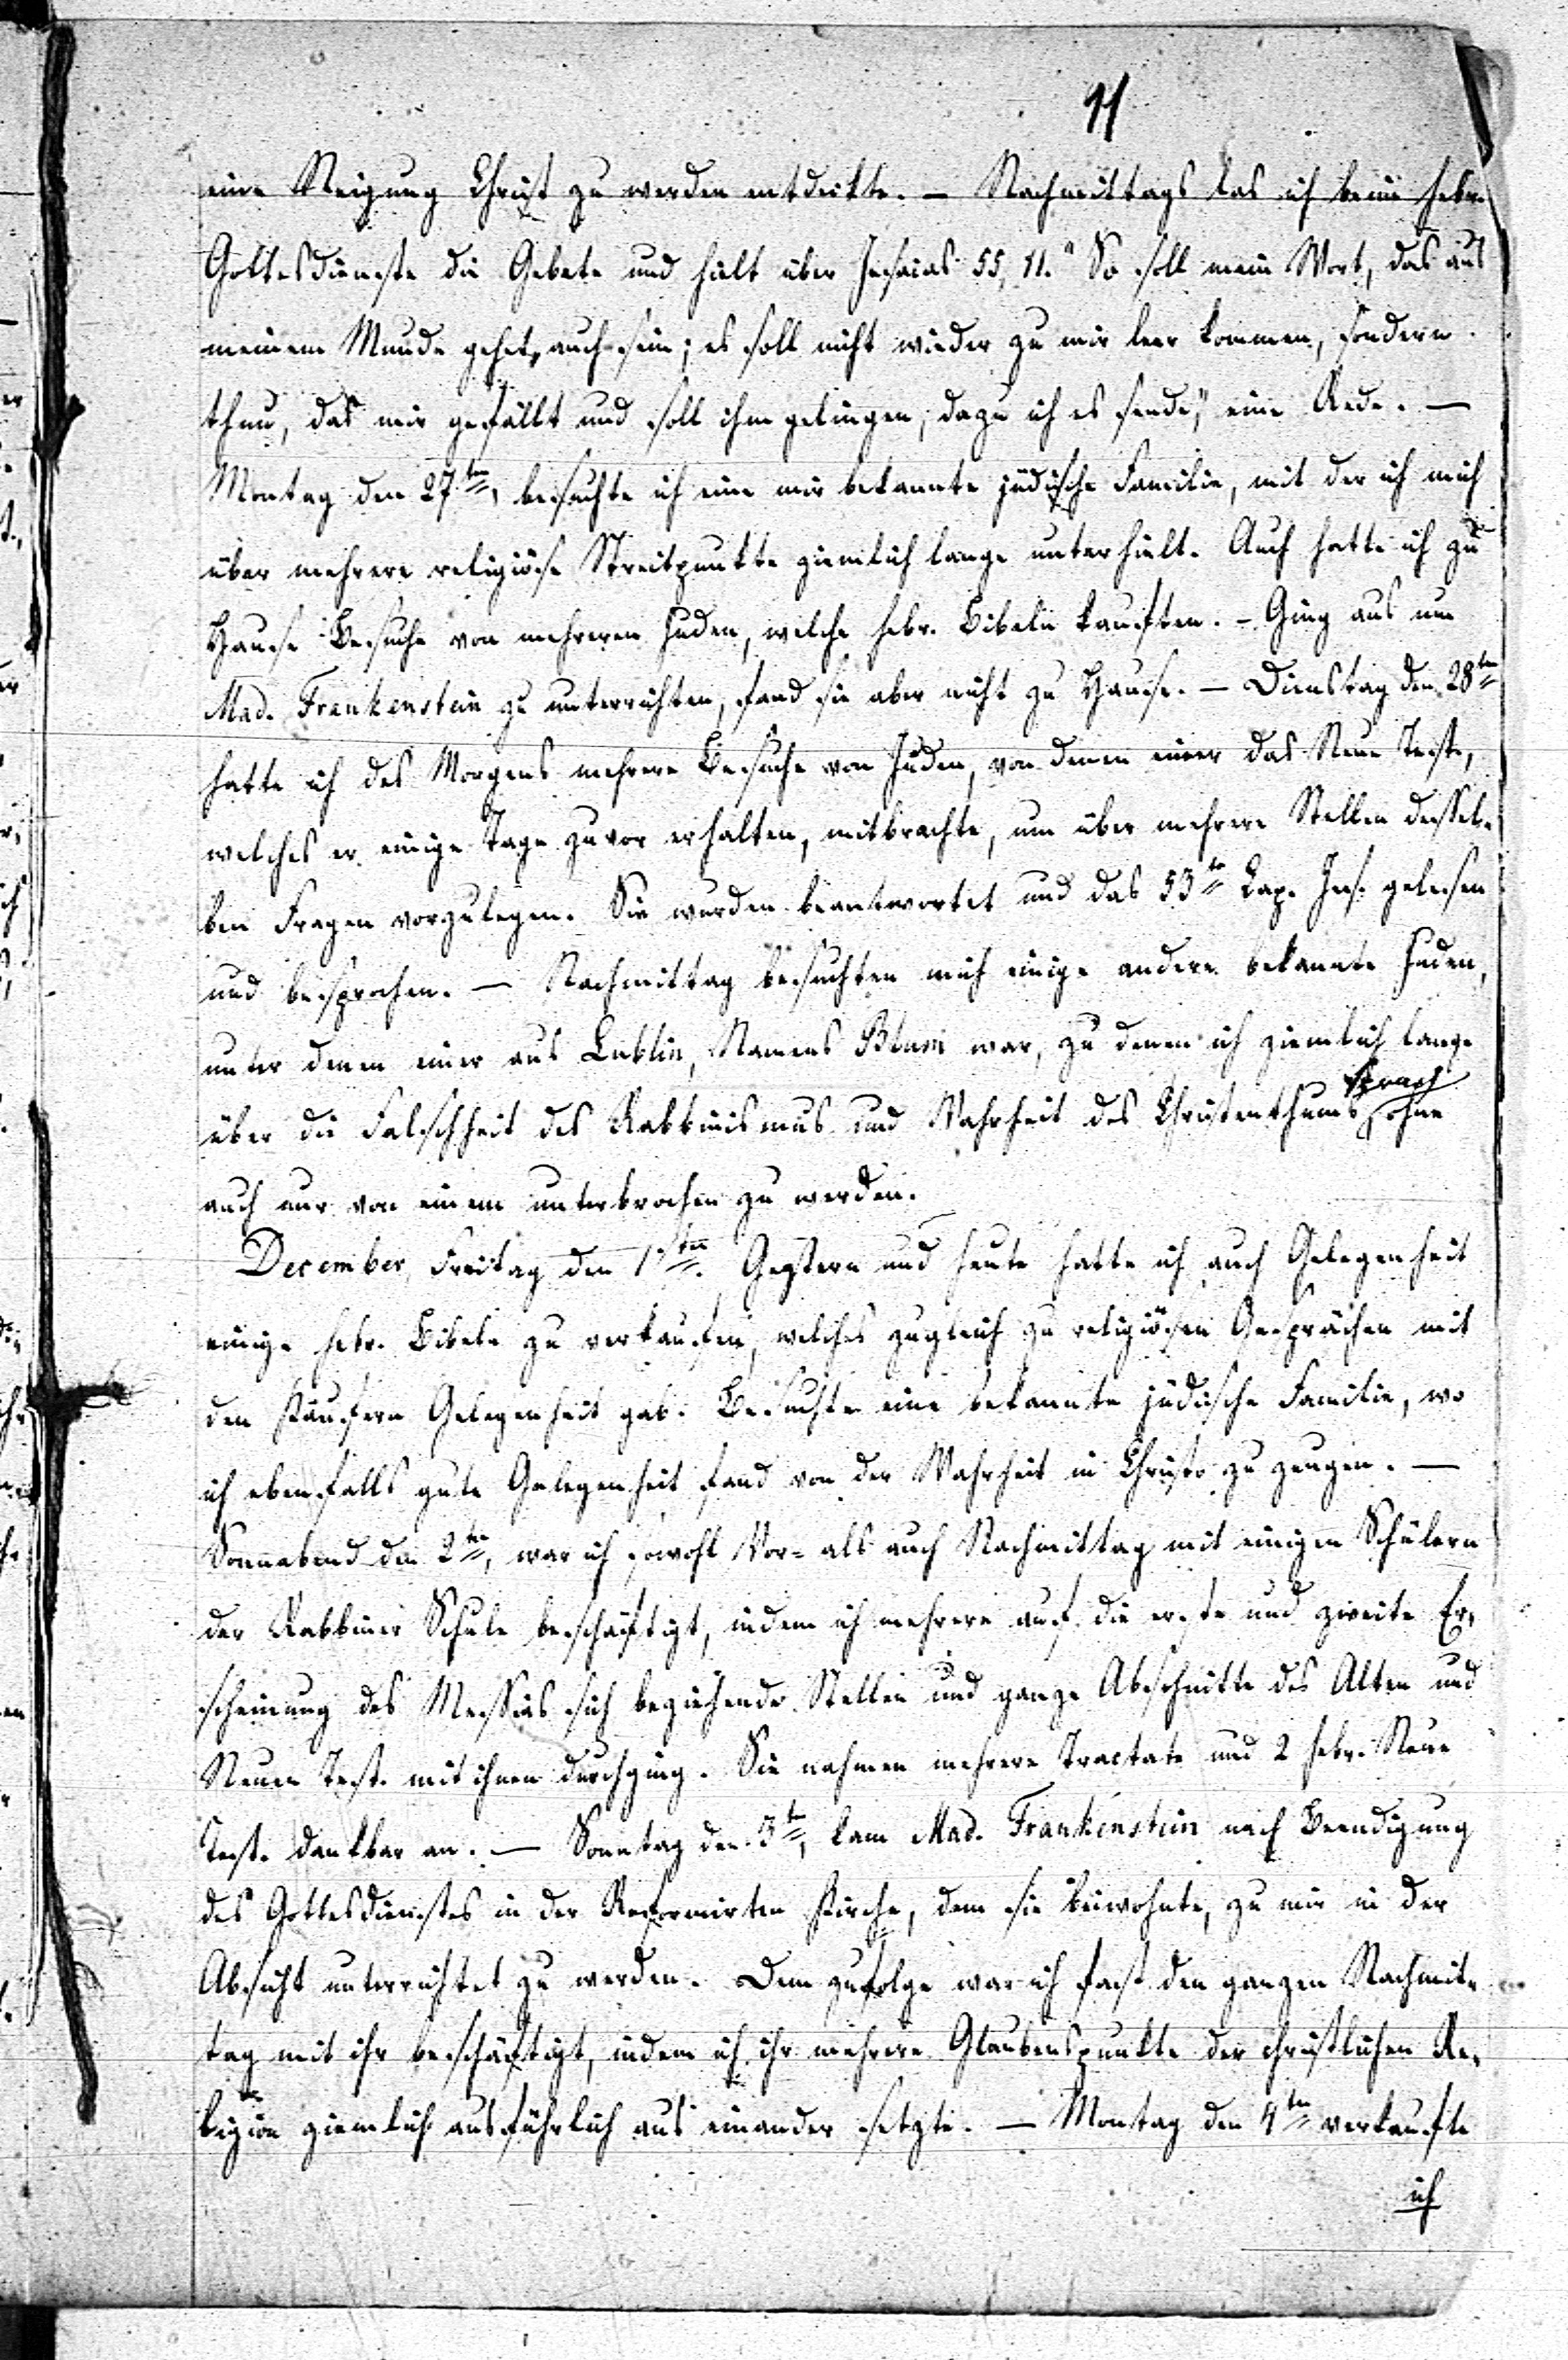 11
eine Neigung Christ zu werden entdeckte. — Nachmittags las ich beim hebr.
Gottesdienste die Gebete und hielt über Jesaias 55, 11. „So soll mein Wort, das aus
meinem Munde gehet, auch sein; es soll nicht wieder zu mir leer kommen, sondern
thun, das mir gefällt und soll ihm gelingen, dazu ich es sende," eine Rede. —
Montag den 27ten, besuchte ich eine mir bekannte jüdische Familie, mit der ich mich
über mehrere religiöse Streitpunkte ziemlich lange unterhielt. Auch hatte ich zu
Hause Besuche von mehreren Juden, welche hebr. Bibeln kauften. – Ging aus um
Mad. Frankenstein zu unterrichten, fand sie aber nicht zu Hause. — Dienstag den 28ten
hatte ich des Morgens mehrere Besuche von Juden, von denen einer das Neue Test.,
welches er einige Tage zuvor erhalten, mitbrachte, um über mehrere Stellen dessel-
ben Fragen vorzulegen. Sie wurden beantwortet und das 53te Cap. Jes. gelesen
und besprochen. — Nachmittag besuchten mich einige andere bekannte Juden,
unter denen einer aus Lublin, Namens Blum war, zu denen ich ziemlich lange
über die Falschheit des Rabbinismus und Wahrheit des Christenthums sprach ohne
auch nur von einem unterbrochen zu werden.
December, Freitag den 1sten. Gestern und heute hatte ich auch Gelegenheit
einige hebr. Bibeln zu verkaufen, welches zugleich zu religiösen Gesprächen mit
den Käufern Gelegenheit gab. Besuchte eine bekannte jüdische Familie, wo
ich ebenfalls gute Gelegenheit fand von der Wahrheit in Christo zu zeugen. —
Sonnabend den 2ten, war ich sowohl Vor- als auch Nachmittag mit einigen Schülern
der Rabbiner Schule beschäftigt, indem ich mehrere auf die erste und zweite Er-
scheinung des Messias sich beziehende Stellen und ganze Abschnitte des Alten und
Neuen Test. mit ihnen durchging. Sie nahmen mehrere Tractate und 2 hebr. Neue
Test. dankbar an. — Sonntag den 3ten, kam Mad. Frankenstein nach Beendigung
des Gottesdienstes in der Reformirten Kirche, dem sie beiwohnte, zu mir in der
Absicht unterrichtet zu werden. Dem zufolge war ich fast den ganzen Nachmit-
tag mit ihr beschäftigt, indem ich ihr mehrere Glaubenspunkte der christlichen Re-
ligion ziemlich ausführlich aus einander setzte. — Montag den 4ten verkaufte
ich